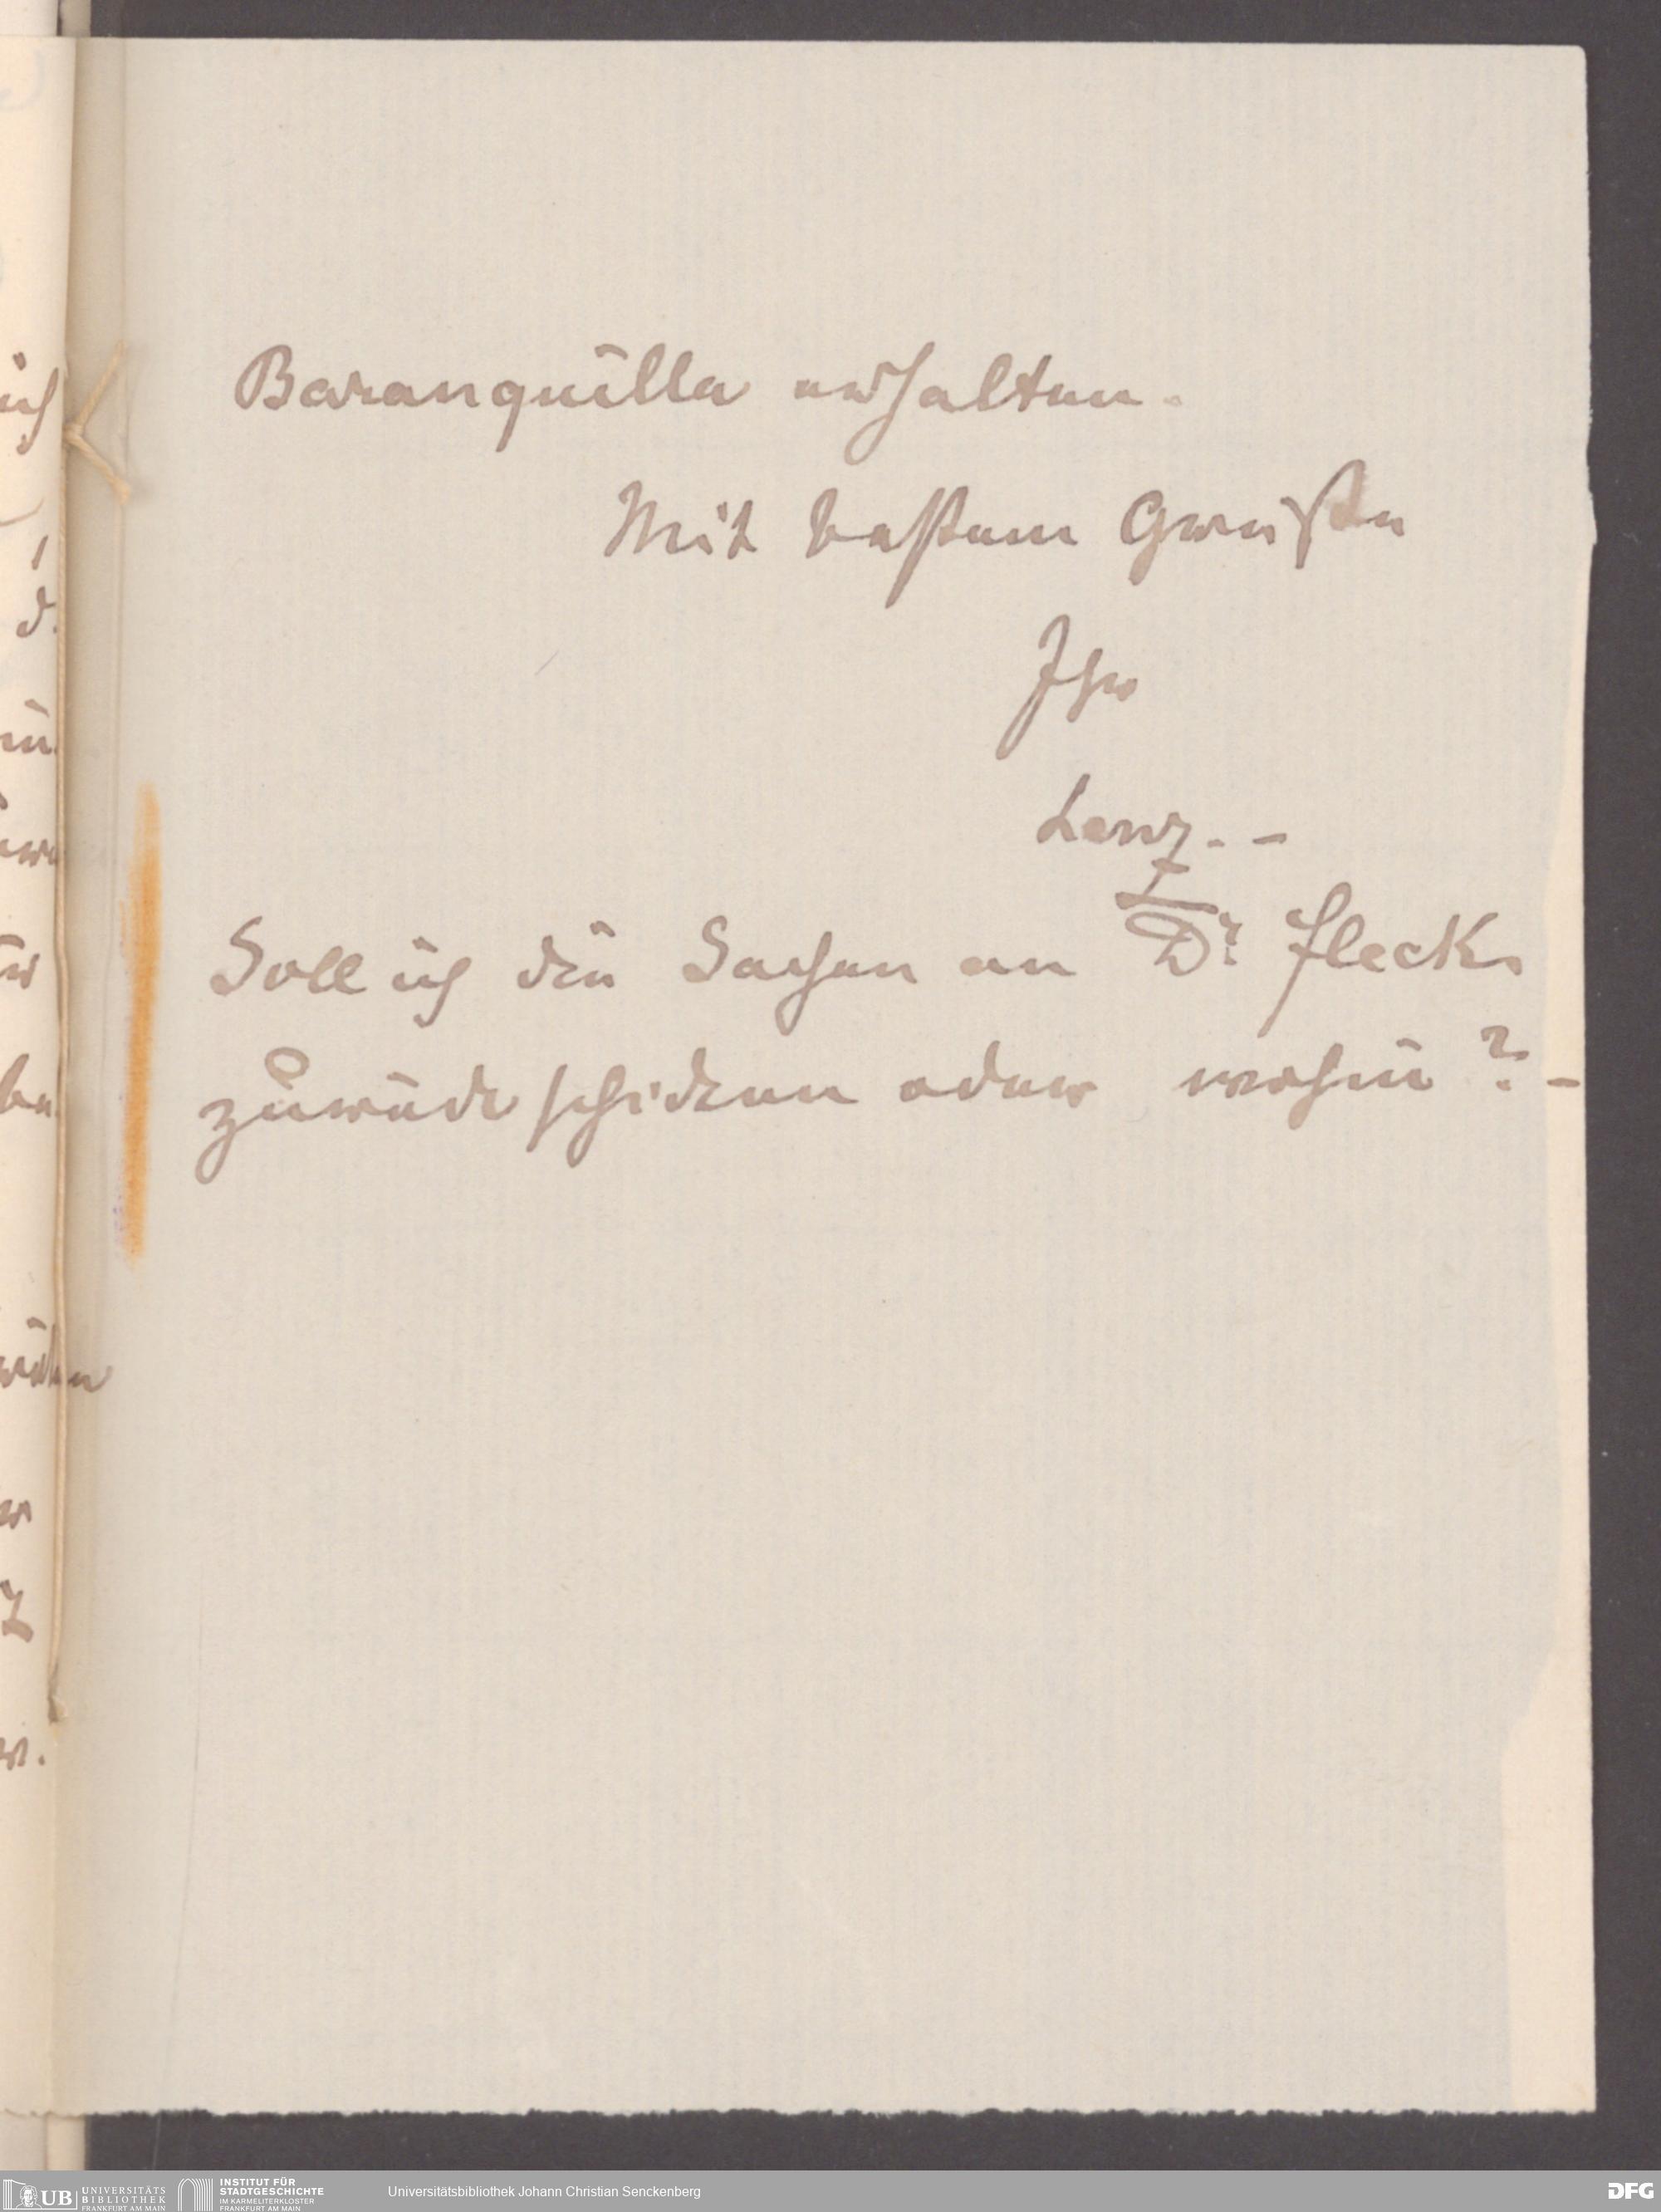 Baranquilla erhalten.
Mit bestem Gruße
Ihr
Lenz. -
Soll ich die Sachen an Dr. Fleck
zurück schicken oder wohin? -
UB UNIVERSITÄTS
BIBLIOTHEK
FRANKFURT AM MAIN
INSTITUT FÜR
STADTGESCHICHTE
IM KARMELITERKLOSTER
FRANKFURT AM MAIN
Universitätsbibliothek Johann Christian Senckenberg
DFG